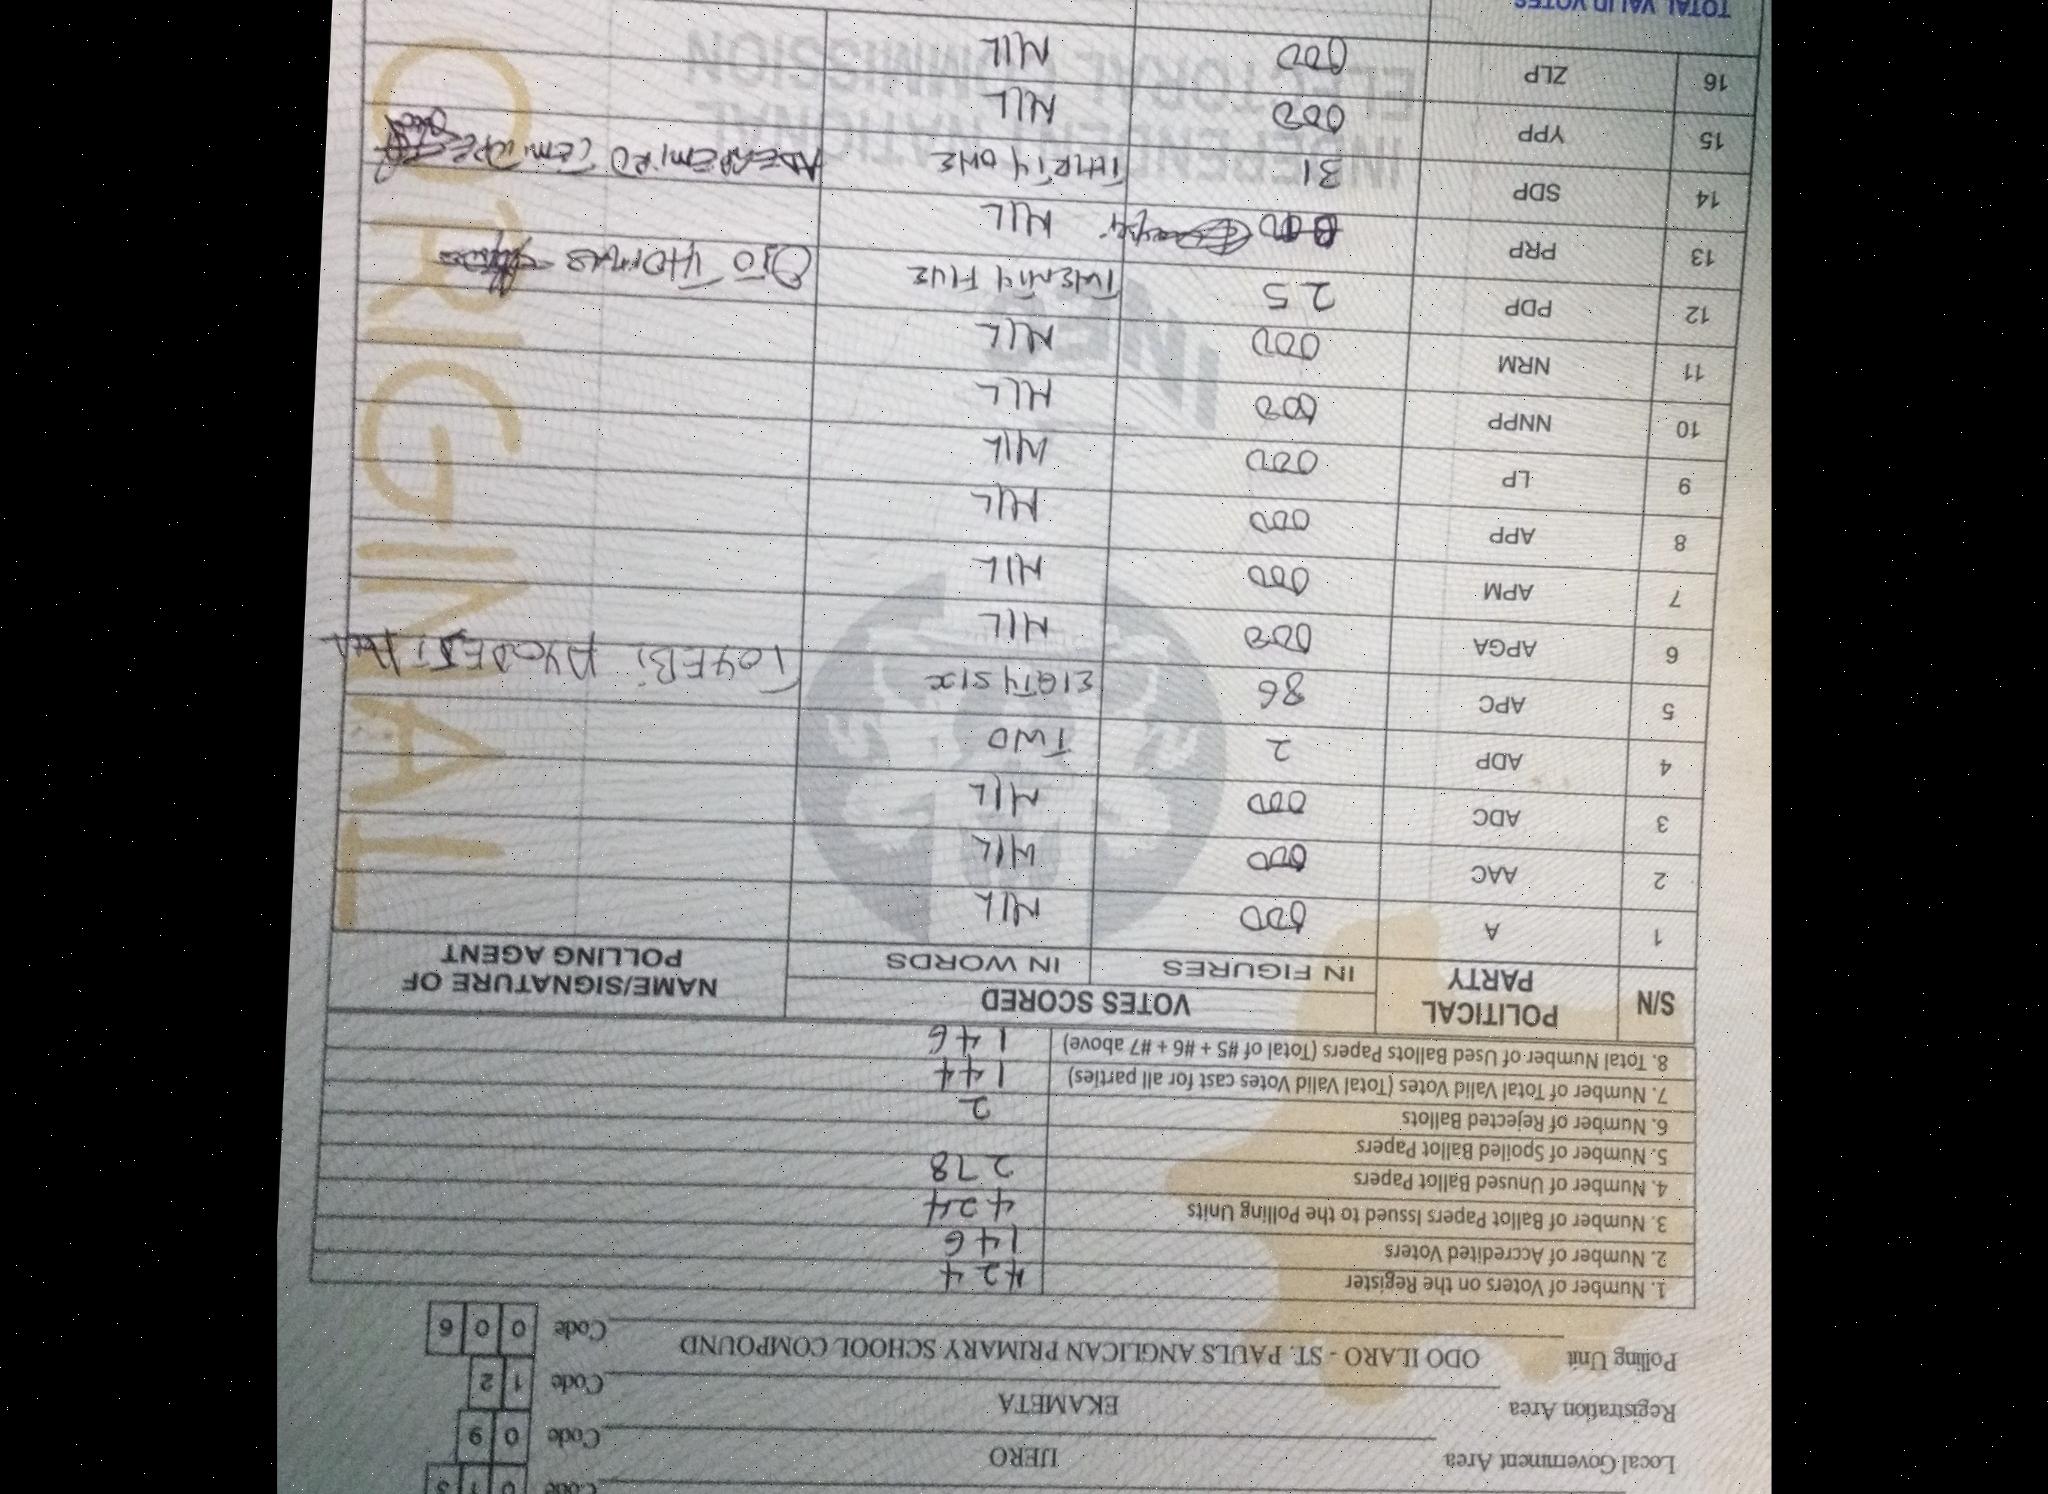 Code 0 1 3
Local Government Area IJERO Code 0 9
Registration Area EKAMETA Code 1 2
Polling Unit ODO ILARO - ST. PAULS ANGLICAN PRIMARY SCHOOL COMPOUND Code 0 0 6
1. Number of Voters on the Register 424
2. Number of Accredited Voters 146
3. Number of Ballot Papers Issued to the Polling Units 424
4. Number of Unused Ballot Papers 278
5. Number of Spoiled Ballot Papers
6. Number of Rejected Ballots 2
7. Number of Total Valid Votes (Total Valid Votes cast for all parties) 144
8. Total Number of Used Ballots Papers (Total of #5 + #6 + #7 above) 146
S/N POLITICAL PARTY VOTES SCORED NAME/SIGNATURE OF POLLING AGENT
IN FIGURES IN WORDS
1 A 000 NIL
2 AAC 000 NIL
3 ADC 000 NIL
4 ADP 2 TWO
5 APC 86 EIGTY SIX TOYEBI AYODEJI
6 APGA 000 NIL
7 APM 000 NIL
8 APP 000 NIL
9 LP 000 NIL
10 NNPP 000 NIL
11 NRM 000 NIL
12 PDP 25 TWENTY FIVE OJO THOMAS
13 PRP 000 NIL
14 SDP 31 THIRTY ONE ADEAREMIRO TEMITOPE
15 YPP 000 NIL
16 ZLP 000 NIL
TOTAL VALID VOTES
ORIGINAL
INEC
INDEPENDENT NATIONAL
ELECTORAL COMMISSION